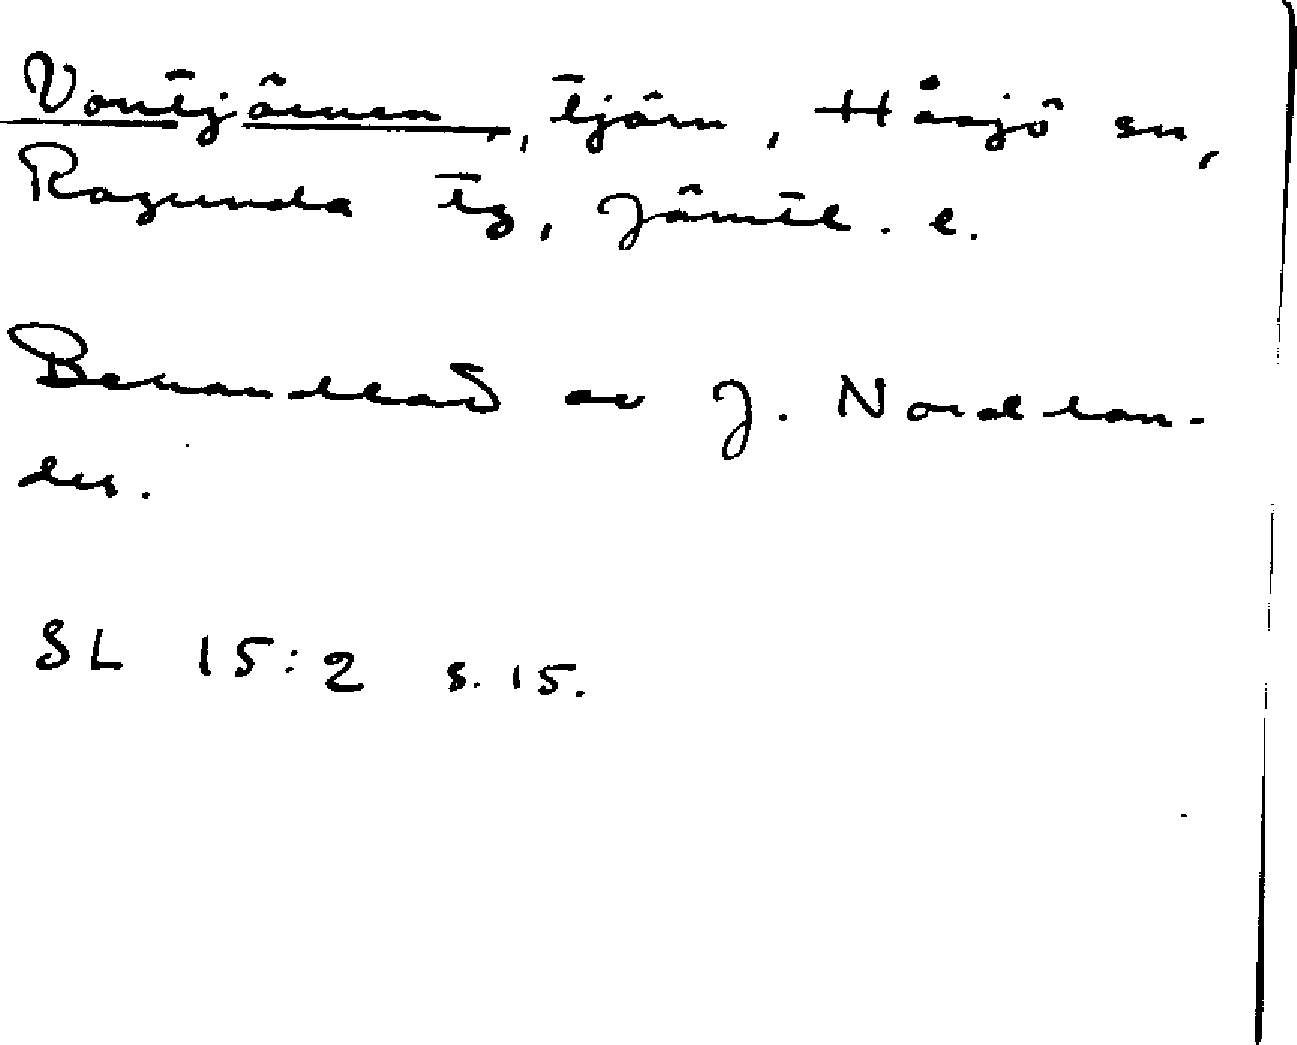 Vontjärnen, tjärn, Håsjö sn,
Ragunda tg, Jämtl. l.
Behandlad av J. Nordlan-
der.
SL 15:2 s. 15.